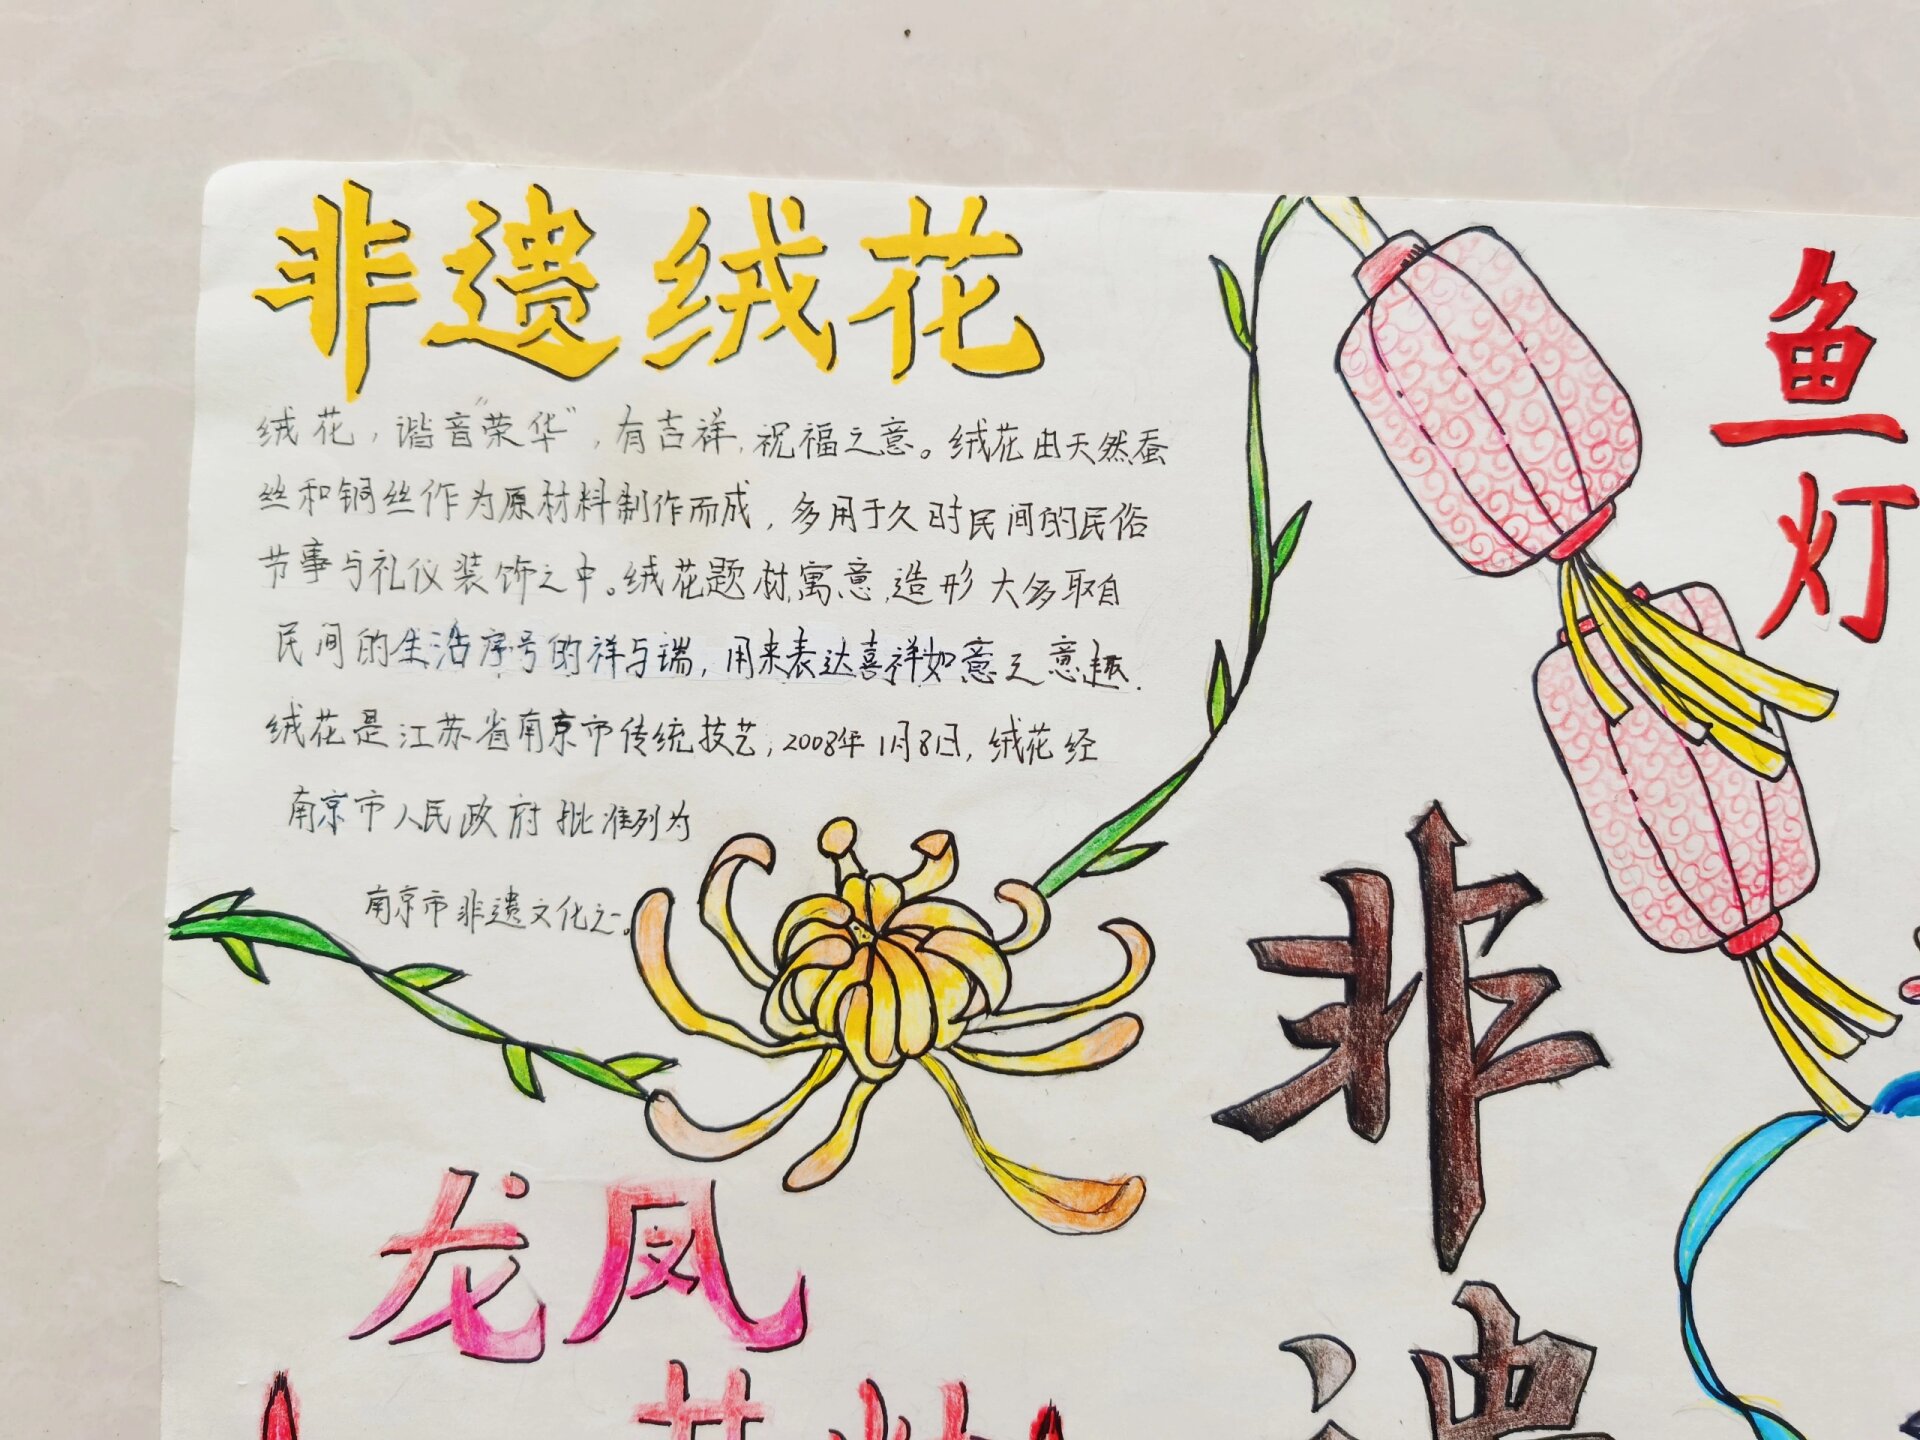 非遗绒花
绒花，谐音"荣华"，有吉祥，祝福之意。绒花由天然蚕
丝和铜丝作为原材料制作而成，多用于久时民间的民俗
节事与礼仪装饰之中。绒花题材，寓意，造形大多取自
民间的生活序号的祥与瑞，用来表达喜祥如意之意趣.
绒花是江苏省南京市传统技艺，2008年1月8日，绒花经
南京市人民政府批准列为
南京市非遗文化之一。
鱼
灯
非
遗
龙凤
花